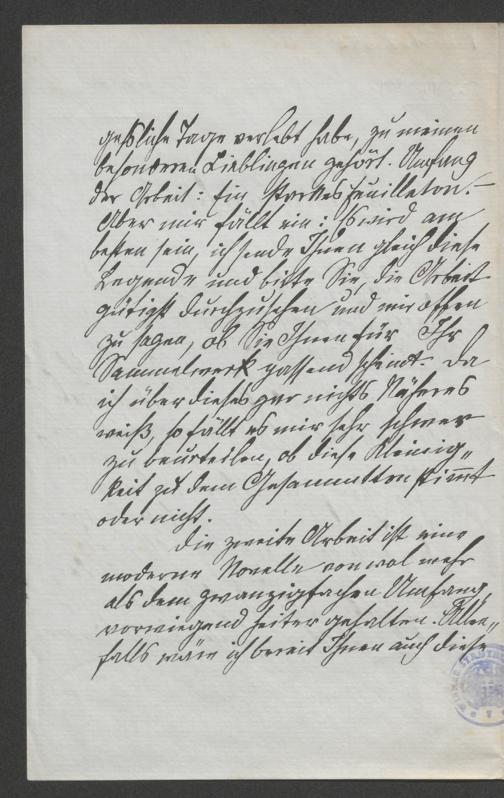 geßliche Tage verlebt habe, zu meinen
besonderen Lieblingen gehört. Umfang
der Arbeit: Ein starkes Feuilleton. –
Aber mir fällt ein: Es wird am
besten sein, ich sende Ihnen gleich diese
Legende und bitte Sie, die Arbeit
gütigst durchzusehen und mir offen
zu sagen, ob sie Ihnen für Ihr
Sammelwerk passend scheint. Da
ich über dieses gar nichts Näheres
weiß, so fällt es mir sehr schwer
zu beurteilen, ob diese Kleinig„
keit zu dem Gesammtton stimmt
oder nicht.
Die zweite Arbeit ist eine
moderne Novelle von wol mehr
als dem zwanzigfachen Umfang,
vorwiegend heiter gehalten. Allen„
falls wäre ich bereit Ihnen auch diese